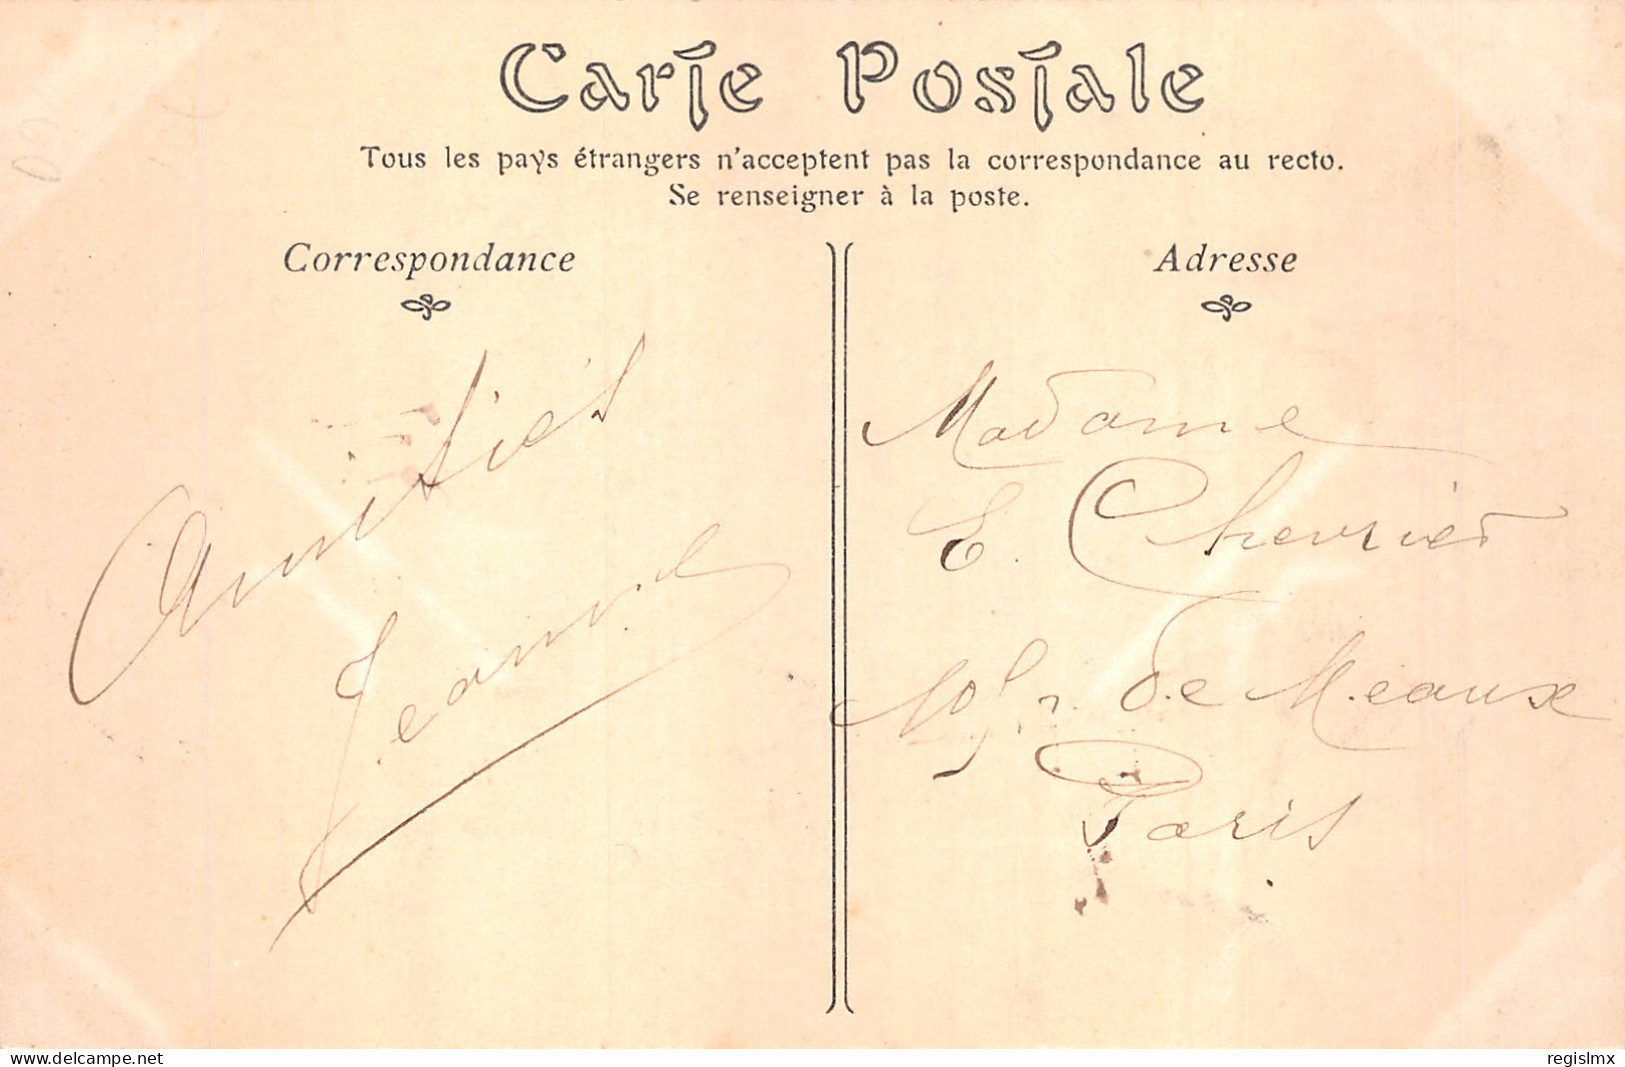 Carte Postale
Tous les pays étrangers n'acceptent pas la correspondance au recto.
Se renseigner à la poste.
Correspondance
Amitiés
Jeanne
Adresse
Madame
E. Chevrier
r. de Meaux
Paris
delcampe.net
regislmx